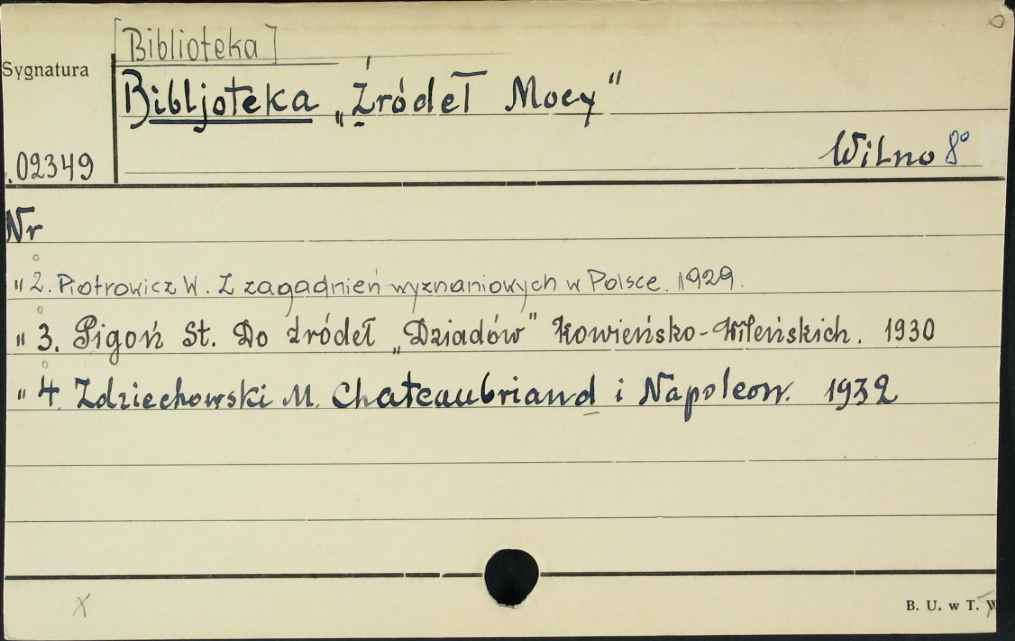 [Biblioteka]
Sygnatura
Bibljoteka „Źródeł Mocy"
Wilno 8°
.02349
Nr
" 2. Piotrowicz W. Z zagadnień wyznaniowych w Polsce. 1929.
" 3. Pigoń St. Do źródeł „Dziadów" Kowieńsko-Wileńskich. 1930
" 4. Zdziechowski M. Chateaubriand i Napoleon. 1932
B. U. w T.